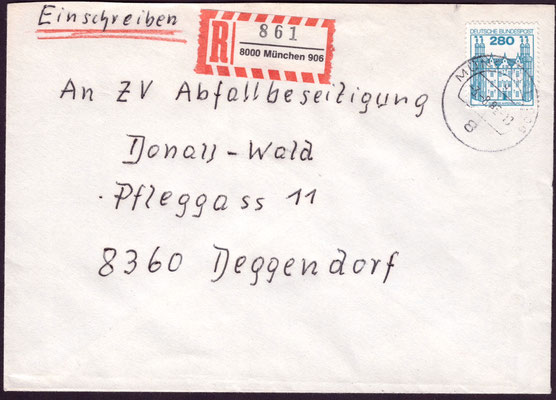 Einschreiben
R
861
8000 München 906
DEUTSCHE BUNDESPOST
11 280 11
An ZV Abfallbeseitigung
Donau-Wald
Pfleggass 11
8360 Deggendorf
8